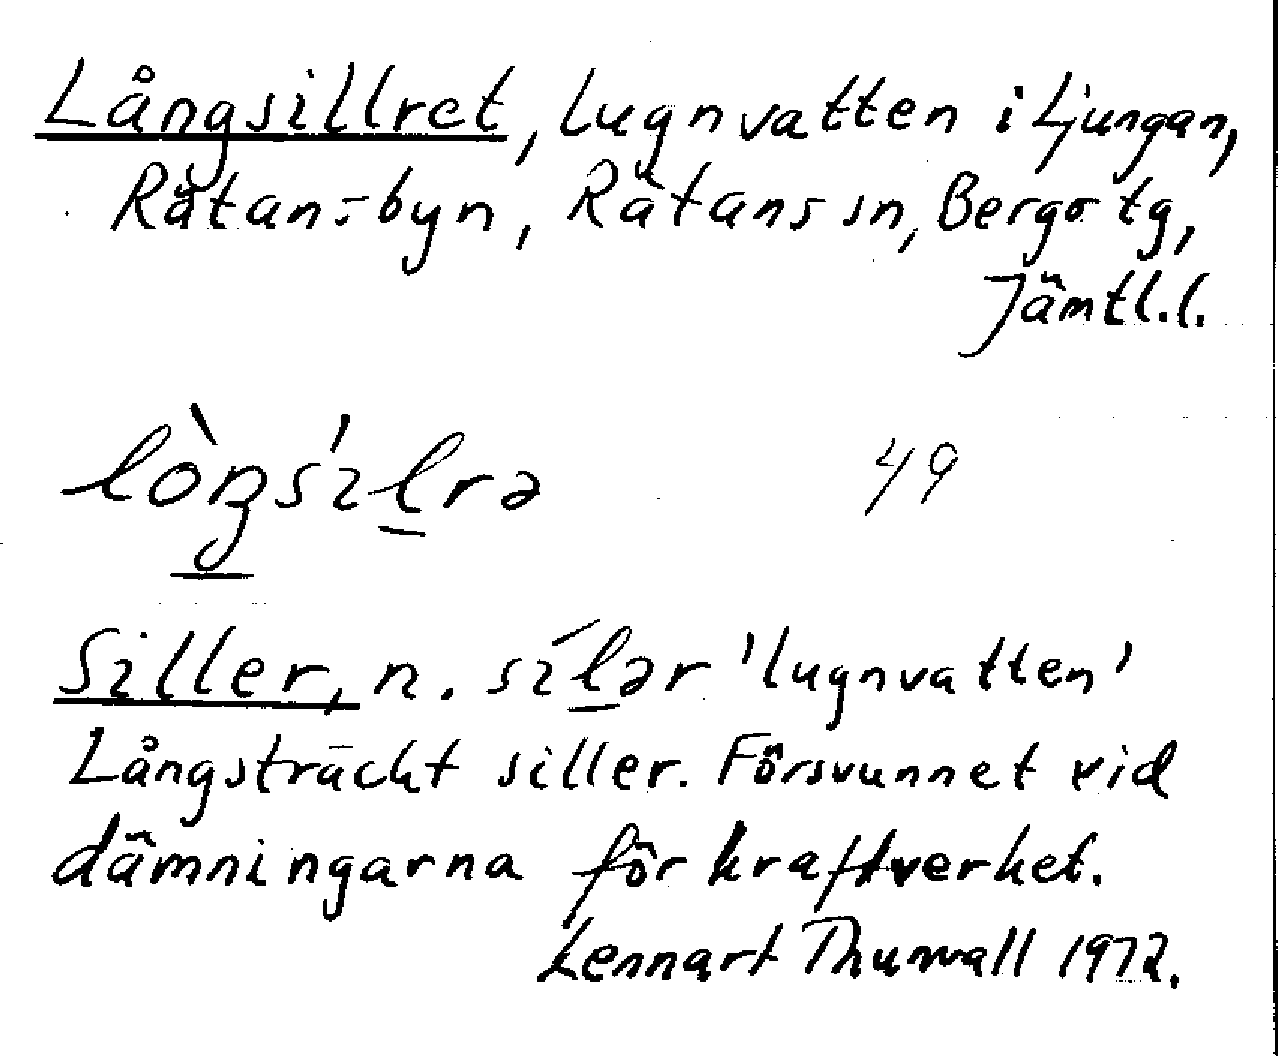 Långsillret, lugnvatten i Ljungan,
Rätans-byn, Rätans sn, Bergs tg,
Jämtl.l.
lò̱ŋsíl̲rə 49
Siller, n. síl̲ər 'lugnvatten'
Långsträckt siller. Försvunnet vid
dämningarna för kraftverket.
Lennart Thunvall 1972.